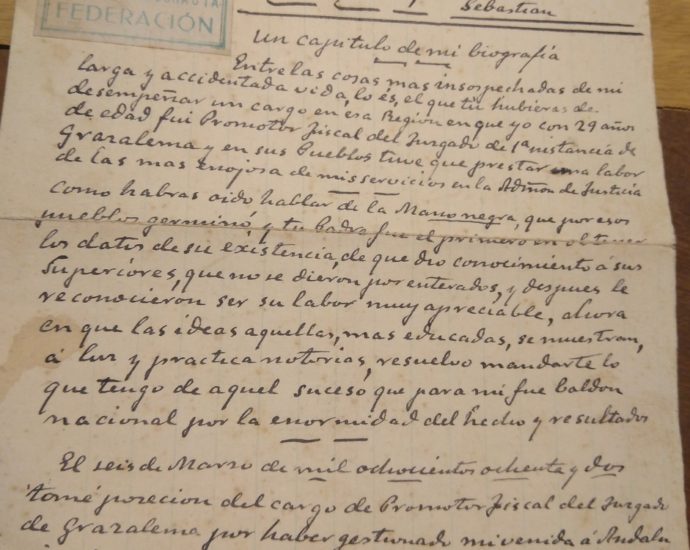 FEDERACIÓN
Sebastian
Un capitulo de mi biografía
Entre las cosas mas insospechadas de mi
larga y accidentada vida, lo és, el que tu hubieras de
desempeñar un cargo en esa Region en que yo con 29 años
de edad fui Promotor fiscal del Juzgado de 1ª instancia de
Grazalema y en sus Pueblos tuve que prestar una labor
de las mas enojosa de mis servicios en la Admon de Justicia
como habras oido hablar de la Mano negra, que por esos
pueblos germinó, y tu padre fue el primero en obtener
los datos de su existencia, de que dio conocimiento á sus
Superiores, que no se dieron por enterados, y despues le
reconocieron ser su labor muy apreciable, ahora
en que las ideas aquellas, mas educadas, se muestran,
á luz y practica notorias, resuelvo mandarte lo
que tengo de aquel suceso que para mi fue baldon
nacional por la enormidad del hecho y resultados
El seis de Marzo de mil ochocientos ochenta y dos
tomé posecion del cargo de Promotor fiscal del Juzgado
de Grazalema por haber gestionado mi venida á Andalu